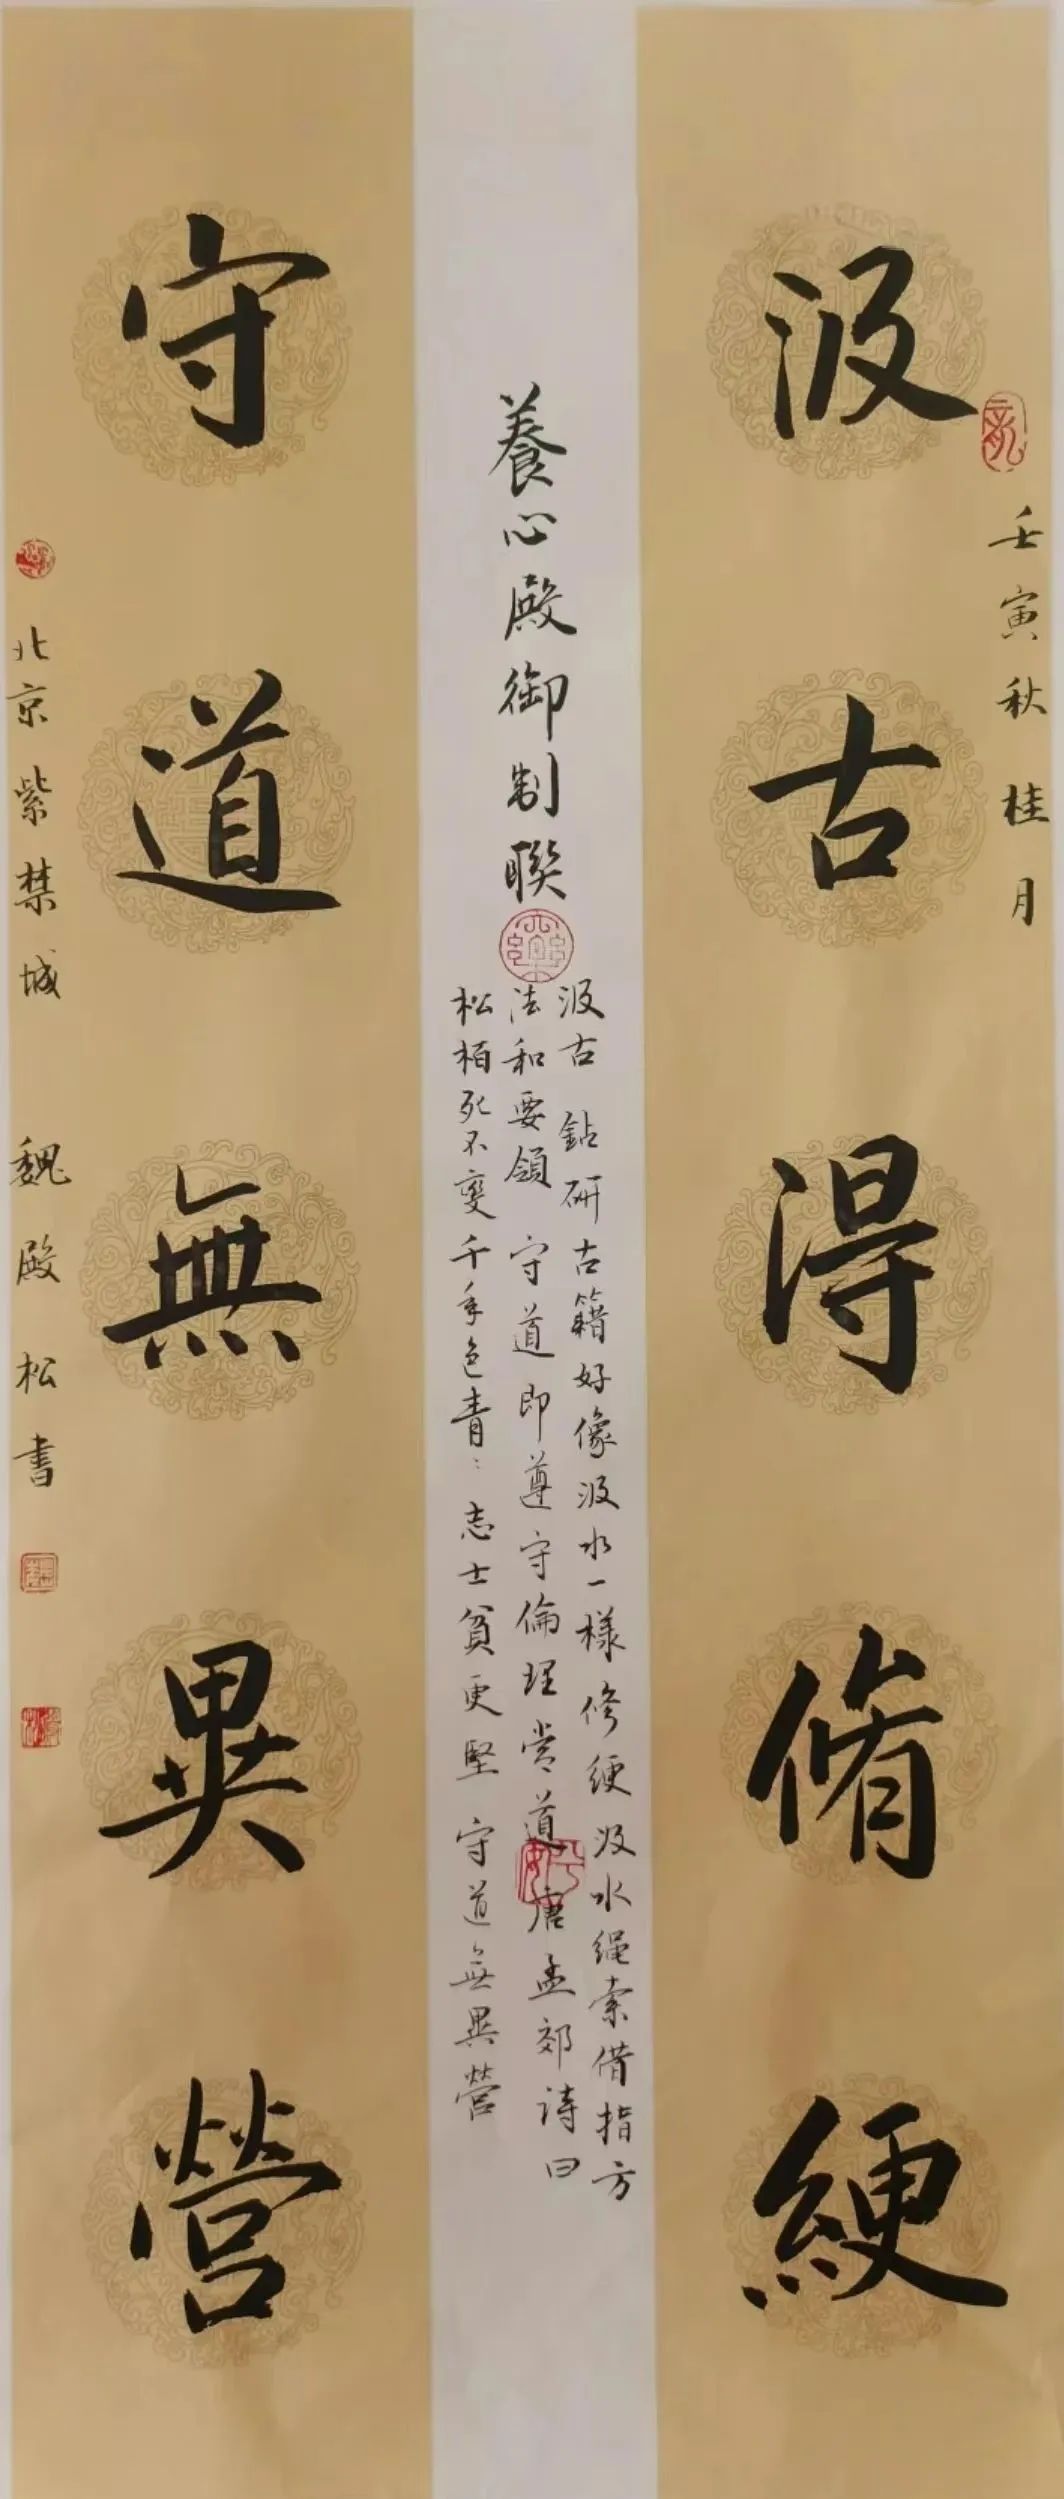 壬寅秋桂月
汲古得脩綆
養心殿御制聯
汲古 鈷研古籍好像汲水一樣修綆汲水繩索借指方
法和要領 守道即遵守倫理常道唐孟郊詩曰
松栢死不變千年色青〻志士貧更堅守道無異營
守道無異營
北京紫禁城 魏殿松書